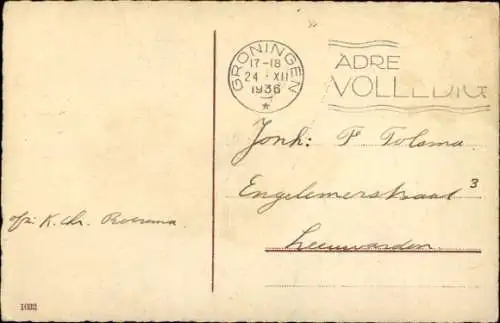 GRONINGEN
17-18
24 XII
1936
ADRE
VOLLEDIG
Jonh: F Tolsma
Engelemerstraat 3
Leeuwarden.
afz: K. Chr. Roersma.
1032